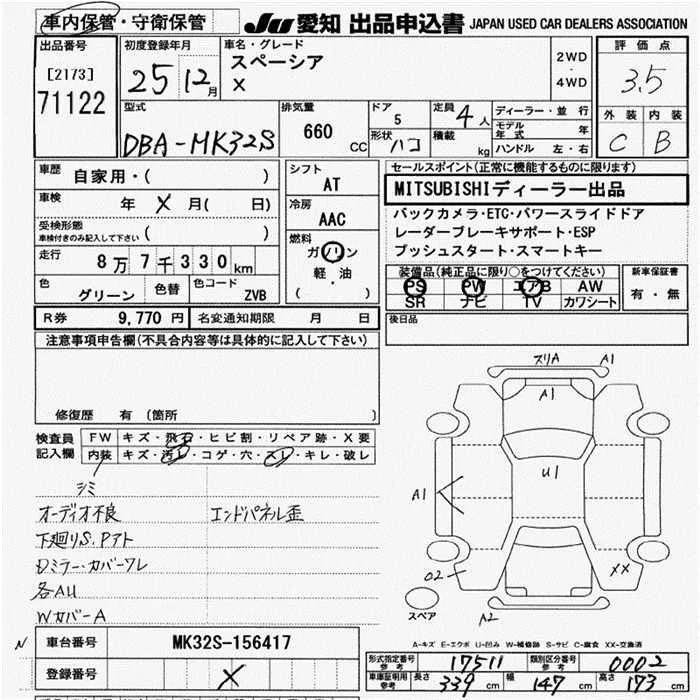 車内保管・守衛保管 JU 愛知 出品申込書 JAPAN USED CAR DEALERS ASSOCIATION
出品番号 初度登録年月 車名・グレード 2WD・4WD 評価点
[2173] 25 12月 スペーシア 3.5
71122 X
外装 内装
型式 排気量 ドア 定員 ディーラー・並行
DBA-MK32S 660 CC 5 4人 モデル年式 年
形状 ハコ 積載 kg ハンドル 左・右 C B
車歴 自家用・( )
車検 年 X 月( 日)
受検形態 ( )
車検付きのみ記入して下さい
走行 8万7千330km
色 グリーン 色替 色コード ZVB
シフト AT
冷房 AAC
燃料 ガソリン
軽・油
( )
セールスポイント(正常に機能するものに限ります)
MITSUBISHIディーラー出品
バックカメラ・ETC・パワースライドドア
レーダーブレーキサポート・ESP
プッシュスタート・スマートキー
装備品(純正品に限り○をつけてください) 新車保証書
PS PW エアB AW 有・無
SR ナビ TV カワシート
R券 9,770円 名変通知期限 月 日
後日品
注意事項申告欄(不具合内容等は具体的に記入して下さい)
修復歴 有 (箇所 )
検査員記入欄 FW キズ・飛石・ヒビ割・リペア跡・X要
内装 キズ・汚レ・コゲ・穴・スレ・キレ・破レ
シミ
オーディオ不良 エンドパネル歪
下廻りS.Pアト
Dミラー・カバーワレ
各AU
WカバーA
ズリA A1
A1
U1
A1
02
XX
スペア
A2
A-キズ E-エクボ U-凹み W-補修跡 S-サビ C-腐食 XX-交換済
N 車台番号 MK32S-156417
登録番号 X
形式指定番号 参考 17511 類別区分番号 参考 0002
車庫証明用 参考 長さ 339cm 幅 147cm 高さ 173cm